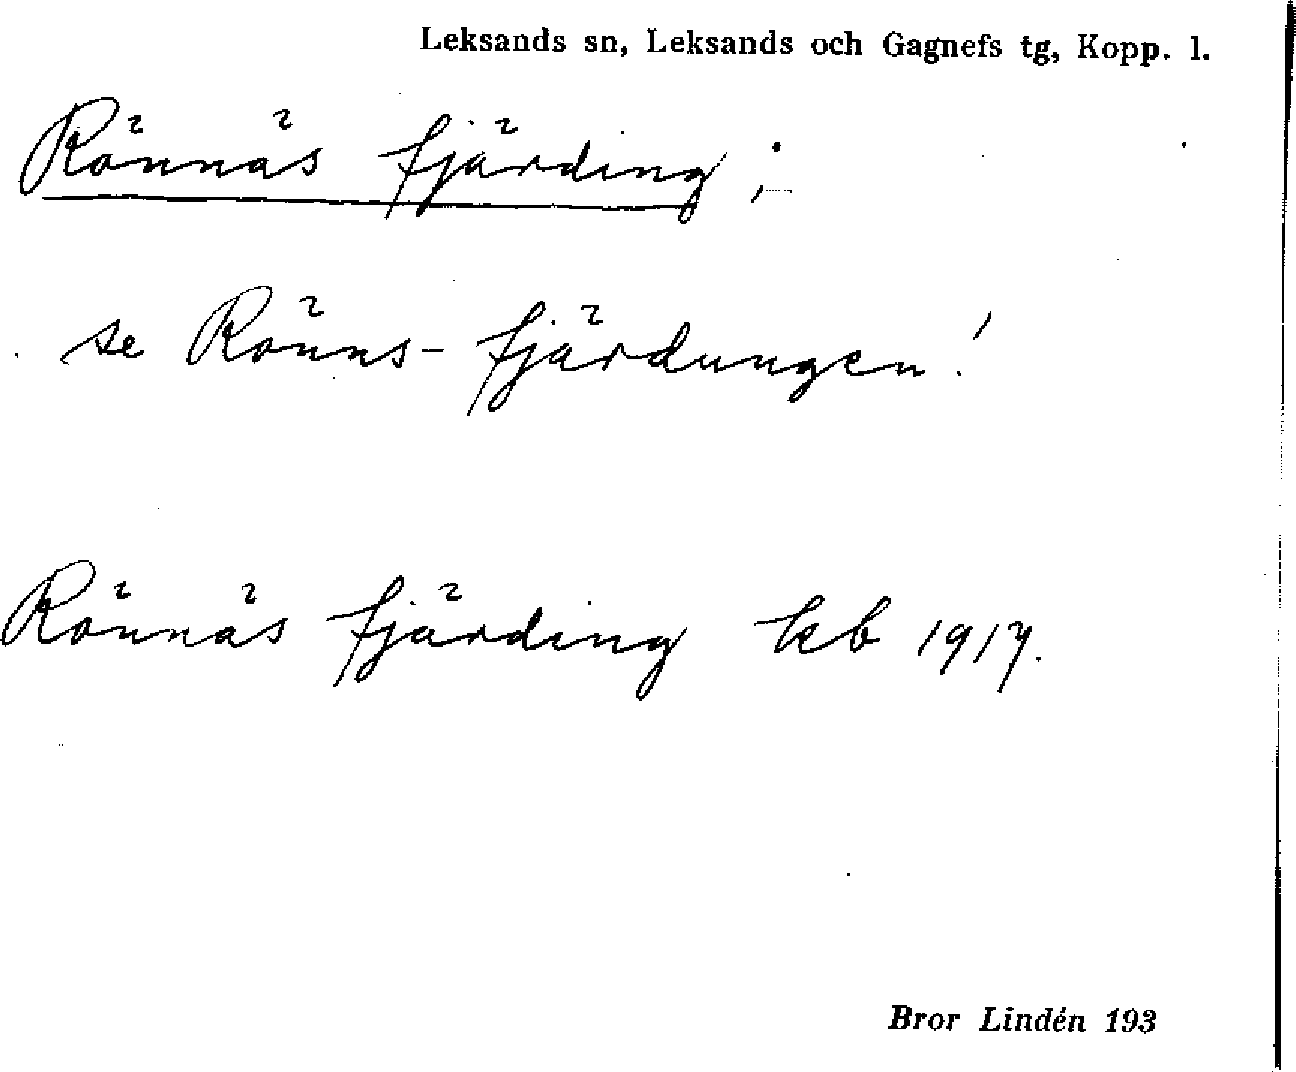 Leksands sn, Leksands och Gagnefs tg, Kopp. l.
Rönnäs fjärding ;
se Rönns-fjärdungen!
Rönnäs fjärding kb 1917.
Bror Lindén 193